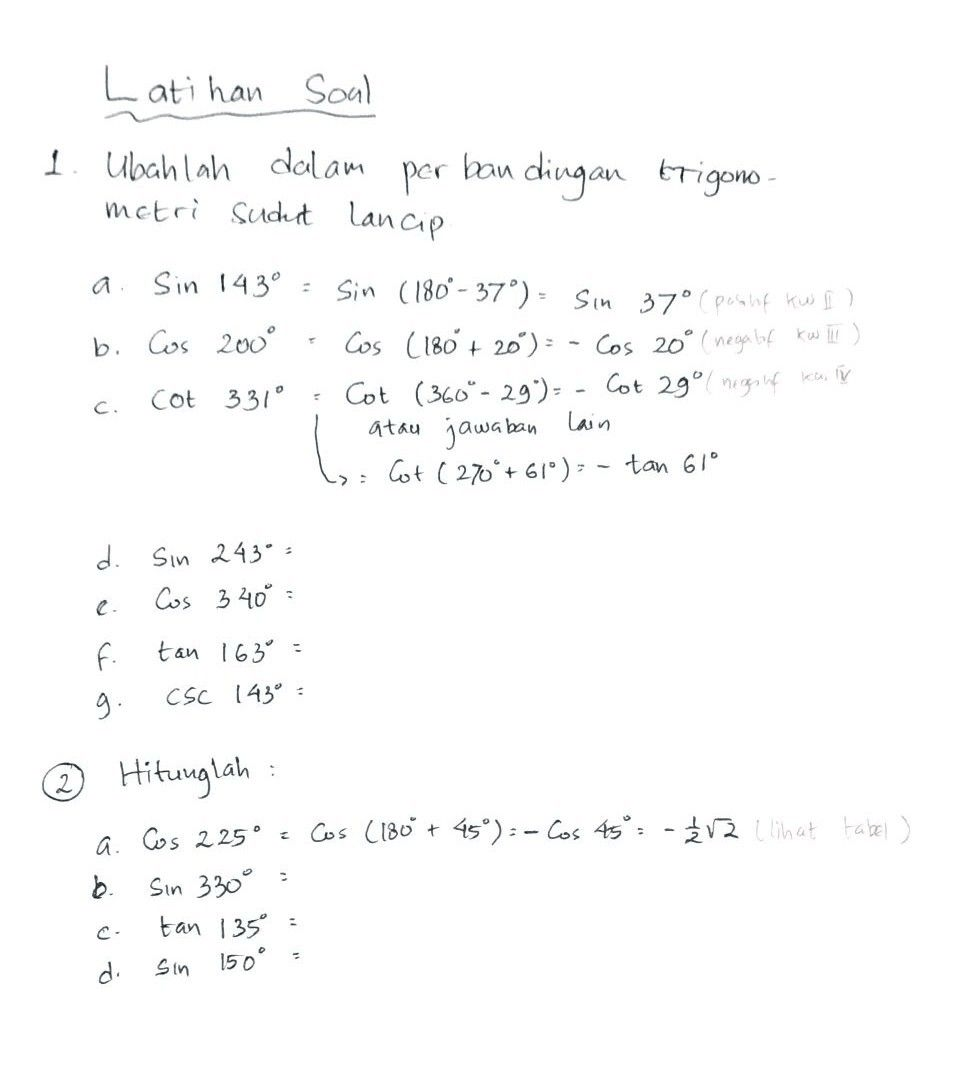 Latihan Soal
1. Ubahlah dalam perbandingan trigono-
metri sudut lancip
a. Sin 143° = Sin (180° - 37°) = Sin 37° (positif kw II)
b. Cos 200° = Cos (180° + 20°) = - Cos 20° (negatif kw III)
c. Cot 331° = Cot (360° - 29°) = - Cot 29° (negatif kw. IV
atau jawaban lain
↳ = Cot (270° + 61°) = - tan 61°
d. Sin 243° =
e. Cos 340° =
f. tan 163° =
g. CSC 143° =
② Hitunglah :
a. Cos 225° = Cos (180° + 45°) = - Cos 45° = - ½√2 (lihat tabel)
b. Sin 330° =
c. tan 135° =
d. Sin 150° =